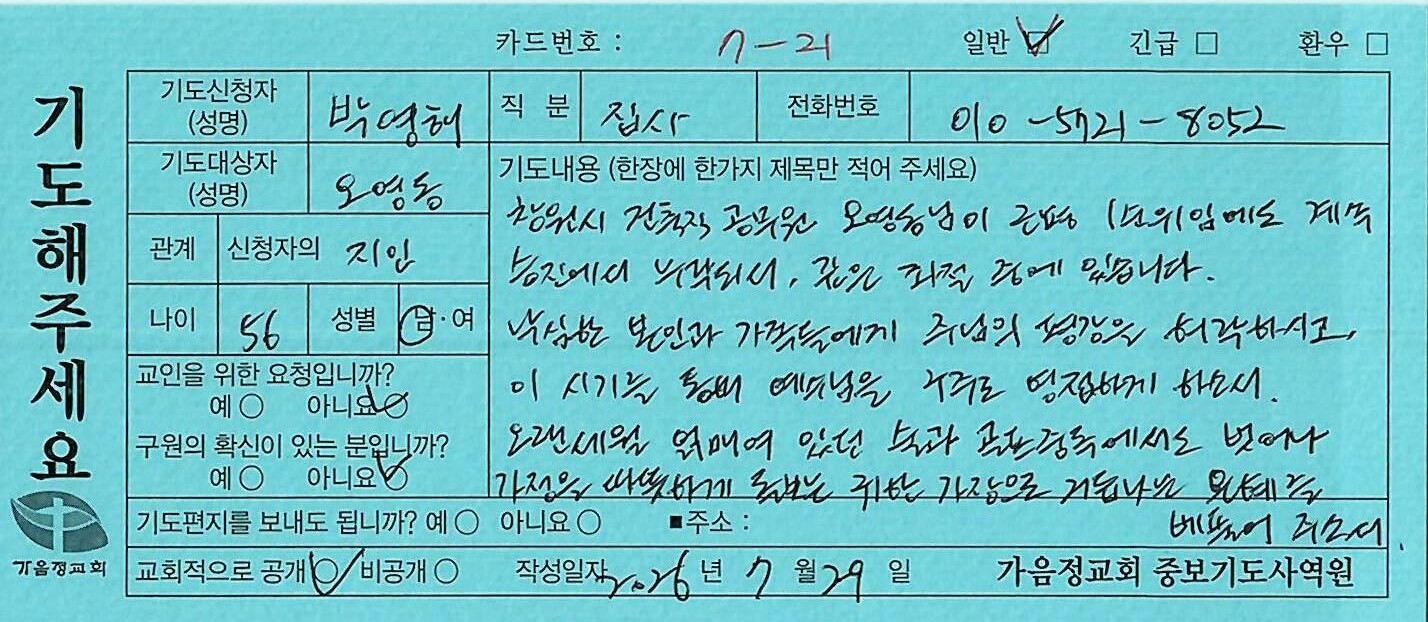 카드번호 : 7-21 일반 ☑ 긴급 □ 환우 □
기도해주세요
기도신청자 (성명) 박영해 직 분 집사 전화번호 010-5721-8052
기도대상자 (성명) 오영동
관계 신청자의 지인
나이 56 성별 남·여
교인을 위한 요청입니까?
예 ○ 아니요 ○
구원의 확신이 있는 분입니까?
예 ○ 아니요 ○
기도내용 (한장에 한가지 제목만 적어 주세요)
창원시 건축직 공무원 오영동님이 근평 1순위임에도 계속
승진에서 누락되서, 깊은 좌절 중에 있습니다.
낙심한 본인과 가족들에게 주님의 평강을 허락하시고,
이 시기를 통해 예수님을 구주로 영접하게 하소서.
오랜세월 얽매여 있던 술과 골프중독에서도 벗어나
가정을 따뜻하게 돌보는 귀한 가장으로 거듭나는 은혜를
베풀어 주소서
기도편지를 보내도 됩니까? 예 ○ 아니요 ○ ■주소 :
교회적으로 공개 ○ 비공개 ○ 작성일자 2026 년 7 월 29 일 가음정교회 중보기도사역원
가음정교회